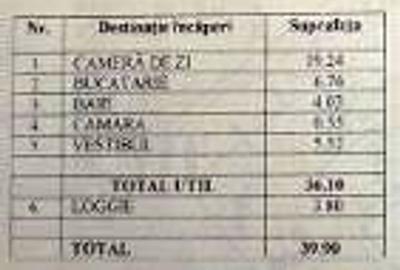 Nr. Destinație încăperi Suprafața
1 CAMERĂ DE ZI 19.24
2 BUCATARIE 6.76
3 BAIE
4 CAMARA
5 VESTIBUL 5.52
TOTAL UTIL 36.10
6 LOGGIE 3.80
TOTAL 39.90